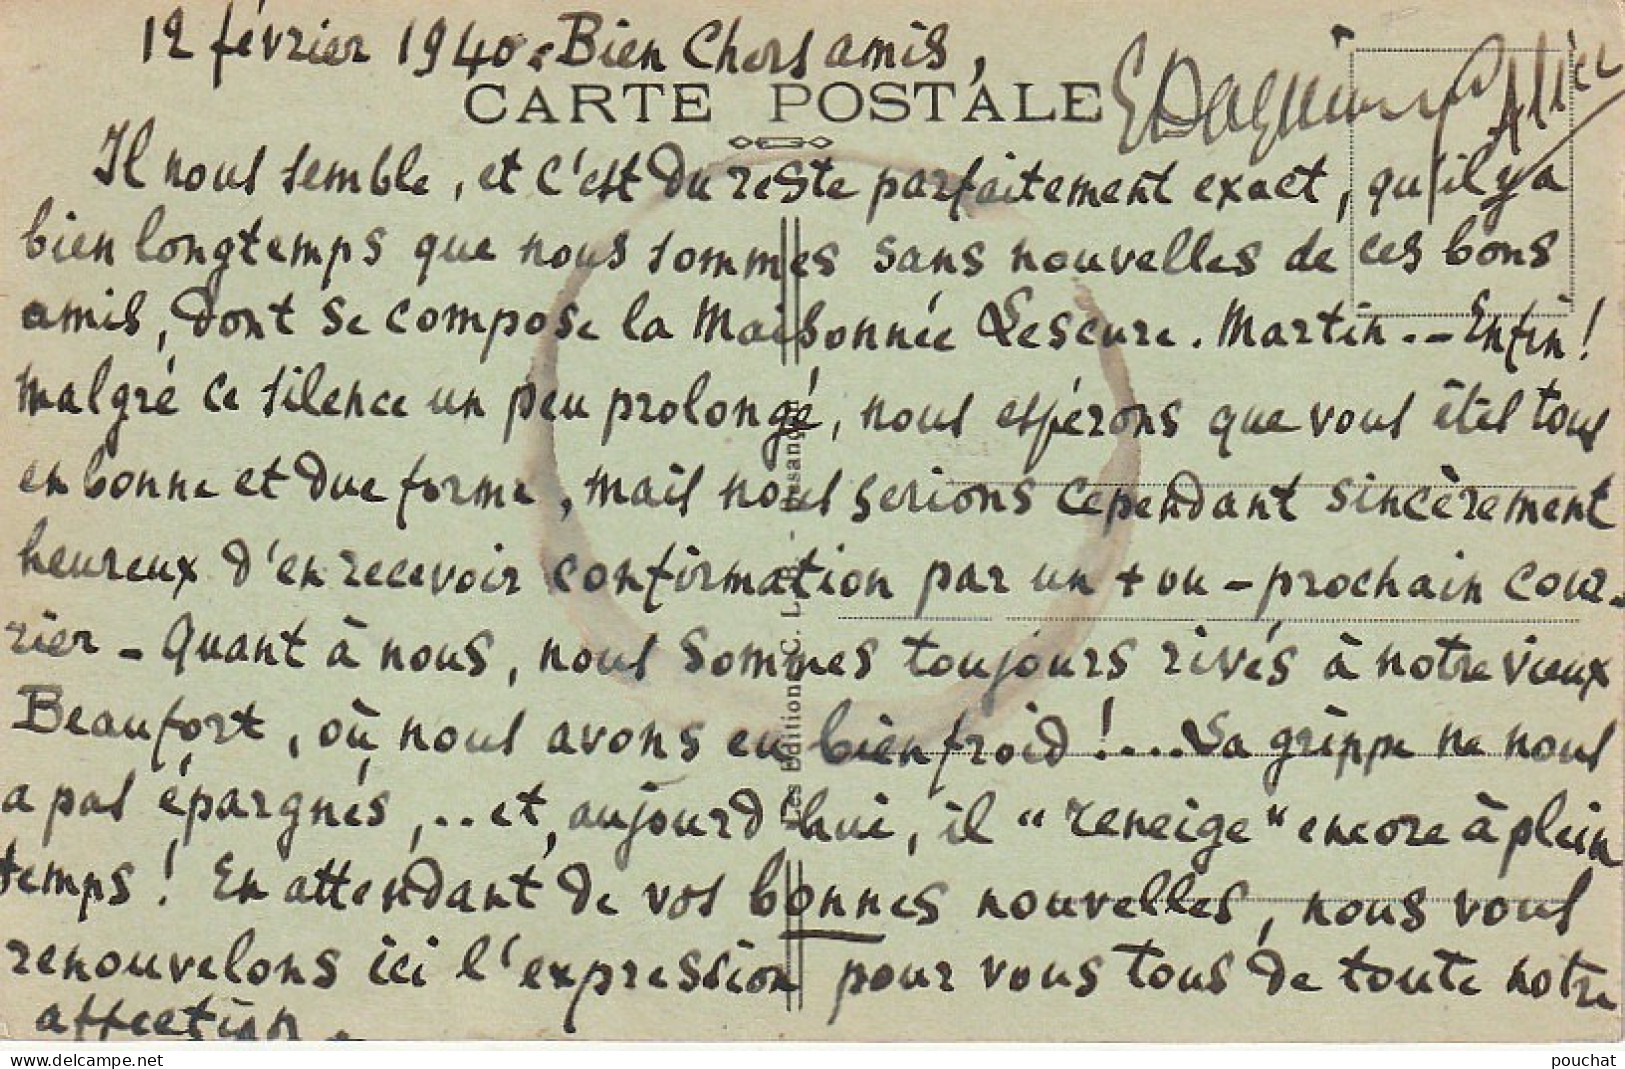 12 février 1940. Bien Chers amis,
CARTE POSTALE
Il nous semble, et c'est du reste parfaitement exact, qu'il y a
bien longtemps que nous sommes sans nouvelles de ces bons
amis, dont se compose la Maisonnée Lescure. Martin.– Enfin!
malgré ce silence un peu prolongé, nous espérons que vous êtes tous
en bonne et due forme, mais nous serions cependant sincèrement
heureux d'en recevoir confirmation par un + ou – prochain cour-
rier – Quant à nous, nous sommes toujours rivés à notre vieux
Beaufort, où nous avons eu bien froid!... La grippe ne nous
a pas épargnés,... et, aujourd'hui, il "reneige" encore à plein
temps! En attendant de vos bonnes nouvelles, nous vous
renouvelons ici l'expression pour vous tous de toute notre
affection.
Les Editions C. L. B. - Besançon
delcampe.net
pouchat